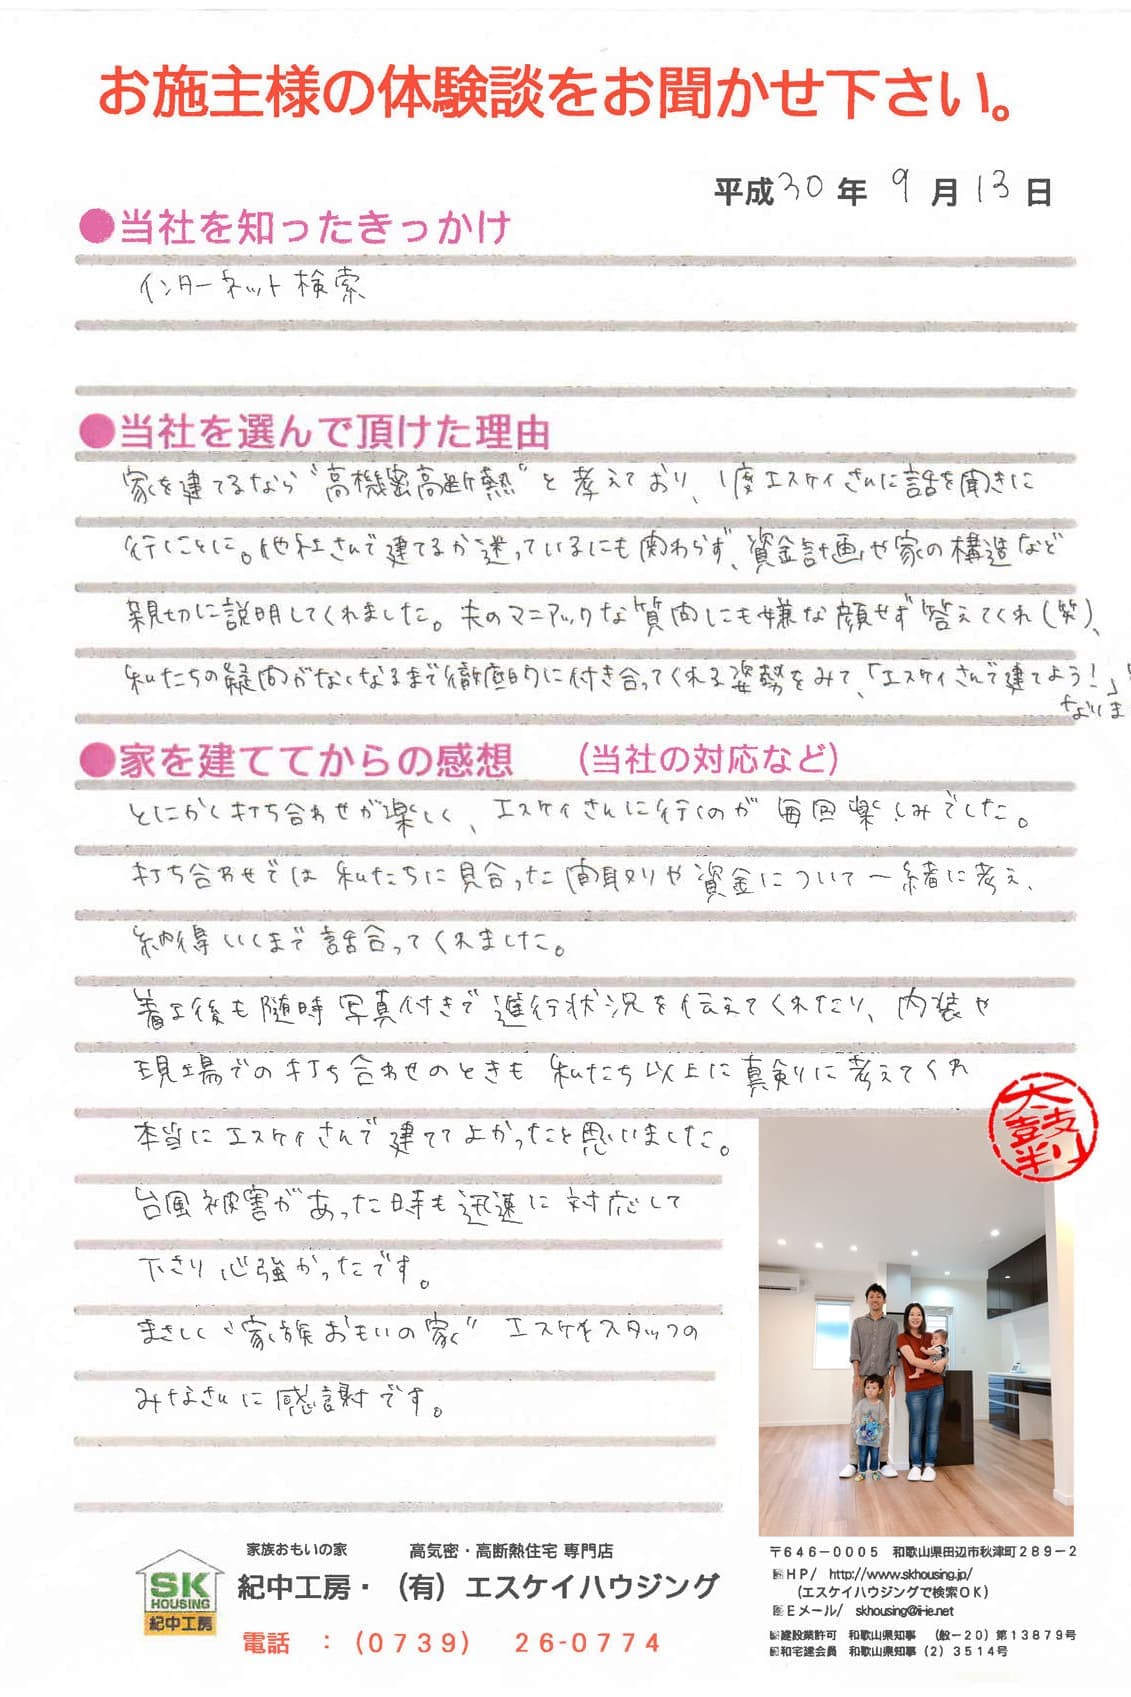 お施主様の体験談をお聞かせ下さい。
平成30年 9月13日
●当社を知ったきっかけ
インターネット検索
●当社を選んで頂けた理由
家を建てるなら“高機密高断熱”と考えており、1度エスケイさんに話を聞きに
行くことに。他社さんで建てるか迷っているにも関わらず、資金計画や家の構造など
親切に説明してくれました。夫のマニアックな質問にも嫌な顔せず答えてくれ(笑)、
私たちの疑問がなくなるまで徹底的に付き合ってくれる姿勢をみて、「エスケイさんで建てよう!」
なりま
●家を建ててからの感想 (当社の対応など)
とにかく打ち合わせが楽しく、エスケイさんに行くのが毎回楽しみでした。
打ち合わせでは私たちに見合った間取りや資金について一緒に考え、
納得いくまで話合ってくれました。
着工後も随時写真付きで進行状況を伝えてくれたり、内装や
現場での打ち合わせのときも私たち以上に真剣に考えてくれ
太鼓判
本当にエスケイさんで建ててよかったと思いました。
台風被害があった時も迅速に対応して
下さり心強かったです。
まさしく“家族おもいの家”エスケイスタッフの
みなさんに感謝です。
家族おもいの家 高気密・高断熱住宅 専門店
SK HOUSING 紀中工房
紀中工房・(有)エスケイハウジング
電話 :(0739) 26-0774
〒646-0005 和歌山県田辺市秋津町289-2
HP/ http://www.skhousing.jp/
(エスケイハウジングで検索OK)
Eメール/ skhousing@i-ie.net
建設業許可 和歌山県知事 (般-20)第13879号
和宅建会員 和歌山県知事(2)3514号